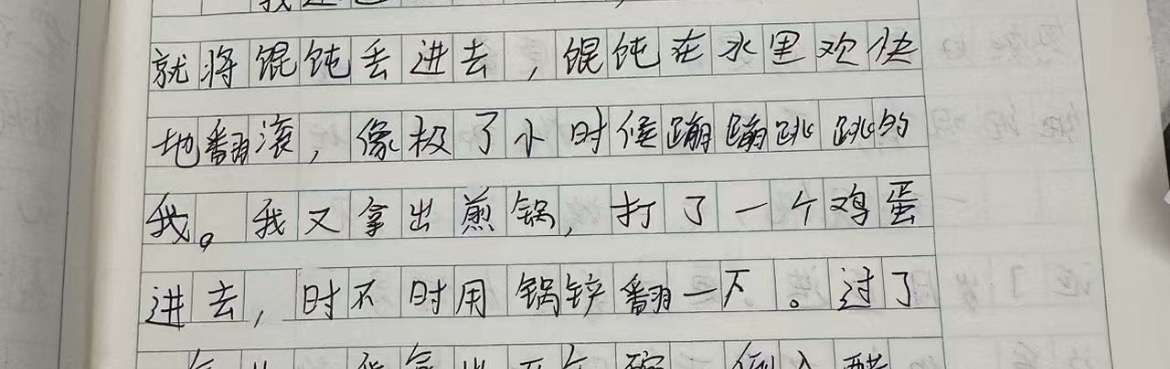 就将馄饨丢进去，馄饨在水里欢快
地翻滚，像极了小时候蹦蹦跳跳的
我。我又拿出煎锅，打了一个鸡蛋
进去，时不时用锅铲翻一下。过了